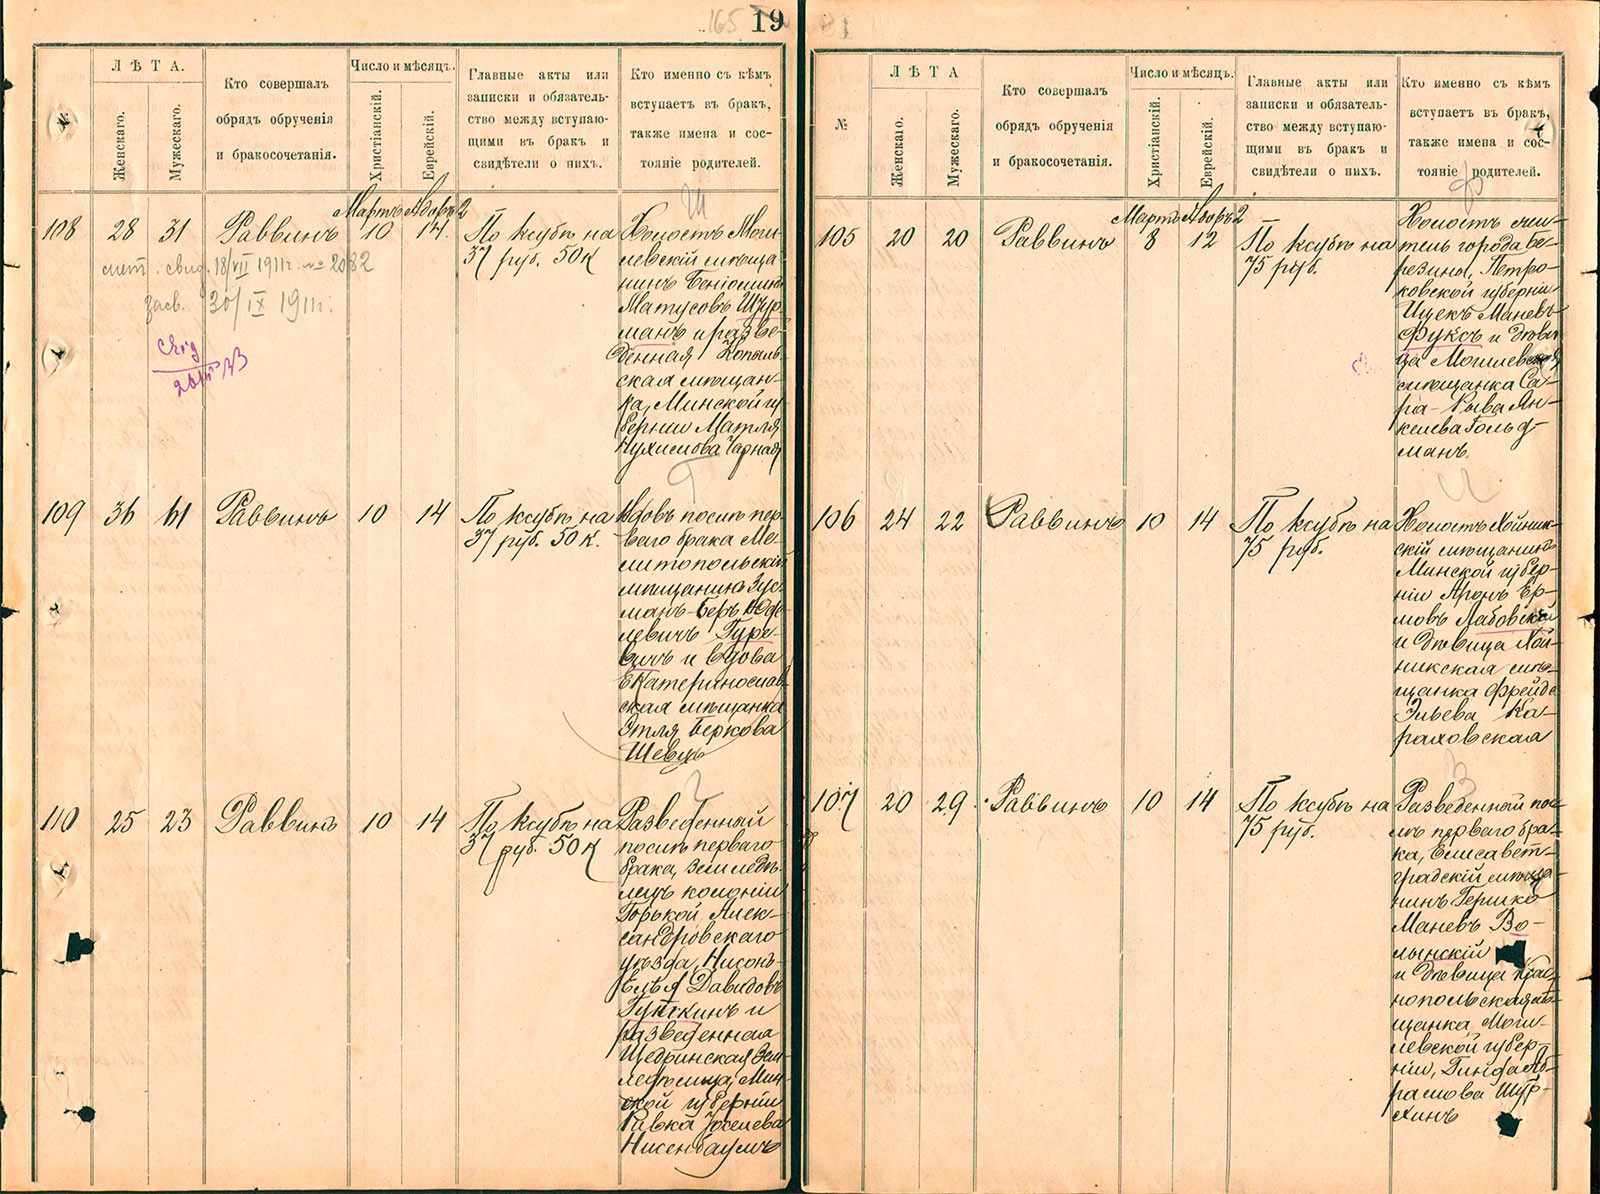 165
19
ЛѢТА.
Женскаго.
Мужескаго.
Кто совершалъ
обрядъ обрученія
и бракосочетанія.
Число и мѣсяцъ.
Христіанскій.
Еврейскій.
Главные акты или
записки и обязатель-
ство между вступаю-
щими въ бракъ и
свидѣтели о нихъ.
Кто именно съ кѣмъ
вступаетъ въ бракъ,
также имена и сос-
тояніе родителей.
Ш
108
28
31
Раввинъ
Мартъ
10
Адаръ 2
14.
По ксубѣ на
37 руб. 50 к
Холостъ Моги-
левскій мѣща
нинъ Беніоминъ
Матусовъ Шур-
манъ и разве-
денная Копыль-
ская мѣщан-
ка, Минской гу
берніи Матля
Нухимова Чарная
свид. 18/VII 1911г. № 2082
засв. 30/IX 1911г.
Г
109
36
61
Раввинъ
10
14
По ксубѣ на
37 руб. 50 к.
Вдовъ послѣ пер-
ваго брака Ме-
литопольскій
мѣщанинъ Зус-
манъ-Беръ
левичъ Гуре-
вичъ и вдова
Екатеринослав-
ская мѣщанка
Этля Беркова
Шевцъ
110
25
23
Раввинъ
10
14
По ксубѣ на
37 руб. 50 к
Разведенный
послѣ перваго
брака, земледѣ-
лецъ колоніи
Горькой Алек-
сандровскаго
уѣзда, Нисонъ-
Давидовъ
и
разведенная
Щедринская Зем-
ледѣлица, Мин-
ской губерніи
Ривка Іоселева
Нисенбаумъ
№
ЛѢТА
Женскаго.
Мужескаго.
Кто совершалъ
обрядъ обрученія
и бракосочетанія.
Число и мѣсяцъ.
Христіанскій.
Еврейскій.
Главные акты или
записки и обязатель-
ство между вступаю-
щими въ бракъ и
свидѣтели о нихъ.
Кто именно съ кѣмъ
вступаетъ въ бракъ,
также имена и сос-
тояніе родителей.
Ф
105
20
20
Раввинъ
Мартъ
8
Адаръ 2
12
По ксубѣ на
75 руб.
Холостъ жи-
тель города Бе-
резины, Петро-
ковской губерніи
Ицекъ Маневъ
Фуксъ и дѣви-
ца Могилевская
мѣщанка Са-
ра-Рыва Ян-
келева Гольд-
манъ.
106
24
22
Раввинъ
10
14
По ксубѣ на
75 руб.
Холостъ Хойник-
скій мѣщанинъ
Минской губер-
ніи Аронъ Бер-
ковъ Лабовскій
и дѣвица Хой-
никская мѣ-
щанка Фрейда
Эльева Ка-
раховская
В
107
20
29
Раввинъ
10
14
По ксубѣ на
75 руб.
Разведенный пос-
лѣ перваго бра-
ка, Елисавет-
градскій мѣща
нинъ Гершко
Маневъ Во-
лынскій
и дѣвица Крас-
нопольская мѣ-
щанка, Моги-
левской губер-
ніи, Гинда Аб-
рамова Шур-
хинъ